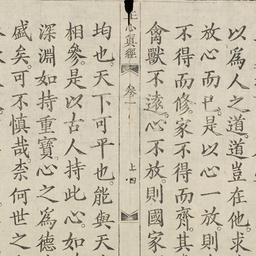 以爲人之道。道豈在他。求
放心而已。是以心一放。則
不得而修。家不得而齊。其
禽獸不遠。心不放。則國家
心眞經 卷一 上 四
均也。天下可平也。能與天
相參。是以古人持此心。如
深淵。如持重寶。心之爲德
盛矣。可不慎哉。柰何世之